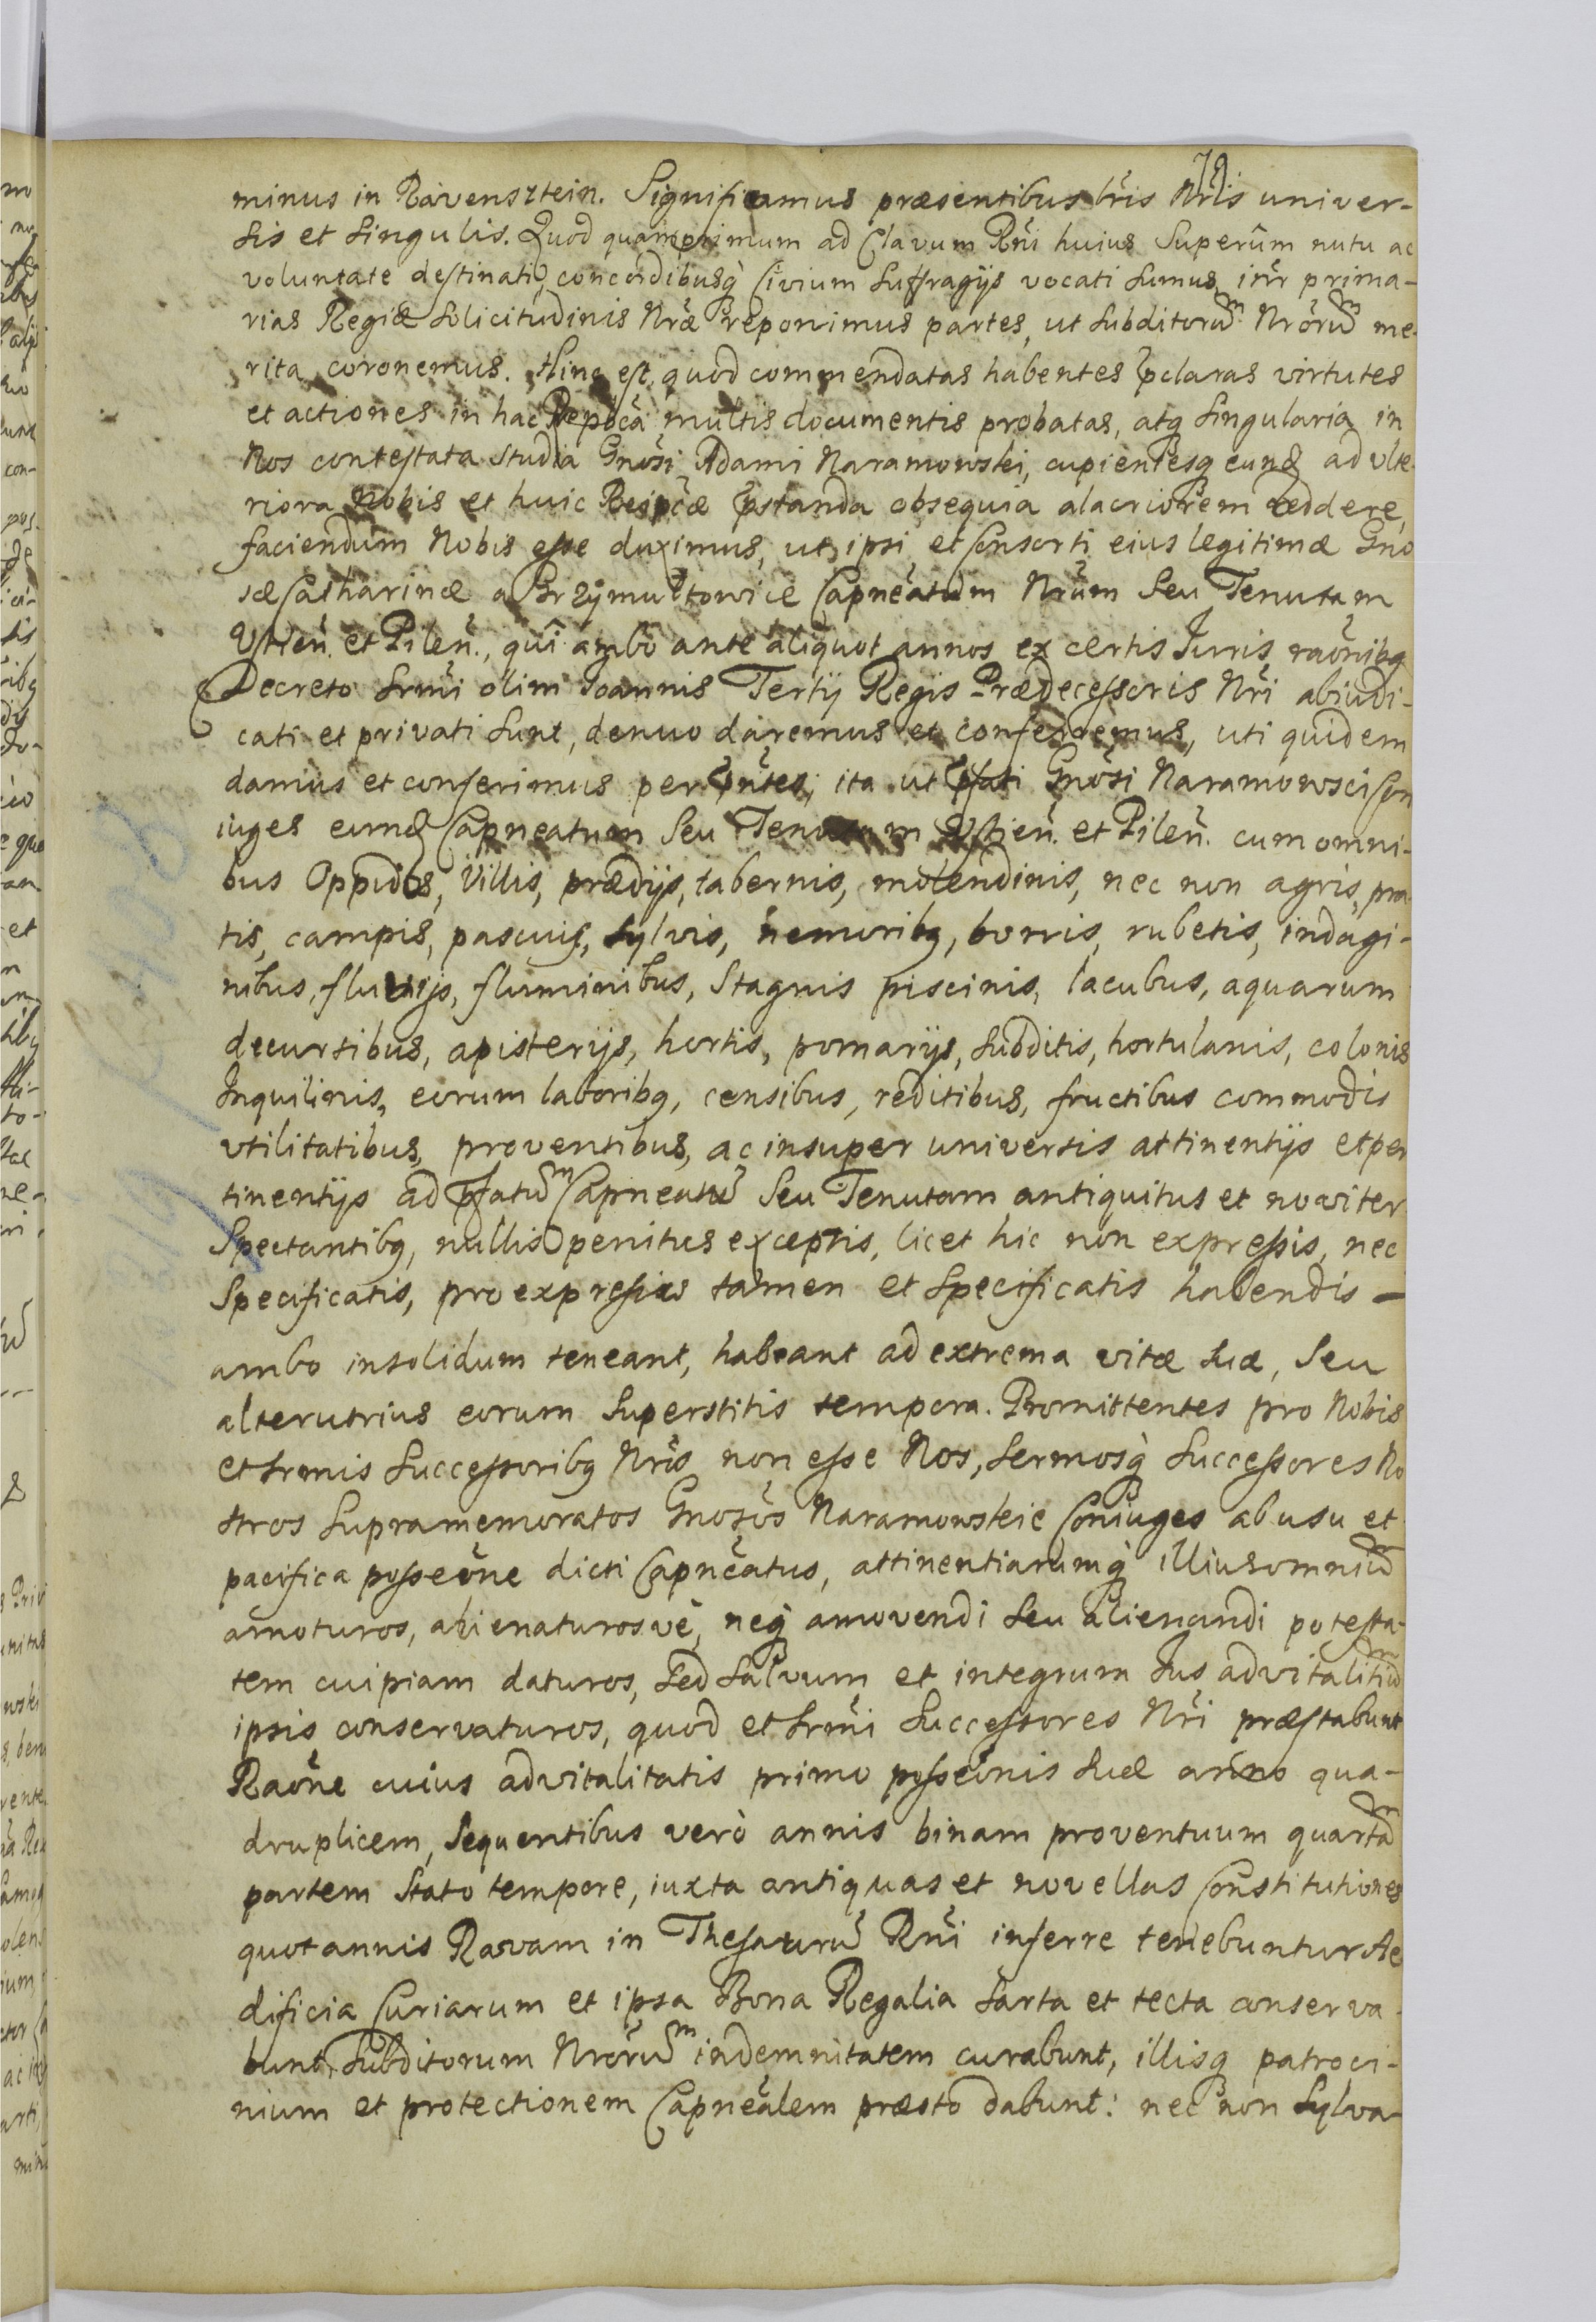 79
minus in Ravensztein. Significamus præsentibus lr̃is Nr̃is univer-
sis et singulis. Quod quamprimum ad Clavum Rñi huius Superûm nutu ac
voluntate destinati, concordibusq̀ Civium suffragijs vocati sumus, itr̃ prima-
rias Regiæ solicitudinis Nr̃æ reponimus partes, ut subditorũm Nr̃orũm me-
rita coronemus. Hinc est, quod commendatas habentes p̃claras virtutes
et actiones in hac Repb̃ca multis documentis probatas, atq singularia in
Nos contestata studia Gnõsi Adami Naramowski, cupientesq eund ad ulte-
riora Nobis et huic Reipc̃æ p̃standa obsequia alacriorem reddere,
faciendum Nobis esse duximus, ut ipsi et Consorti eius legitimæ Gno
sæ Catharinæ a Brzÿmultowice Capneãtum Nr̃um seu Tenutam
Ustien̄. et Pilen̄., quî ambo ante aliquot annos ex certis Iuris raõnibq
Decreto Srm̃i olim Joannis Tertij Regis Prædecessoris Nr̃i abiudi-
cati et privati sunt, denuo daremus et conferremus, uti quidem
damus et conferimus per p̃ñtes; ita ut p̃fati Gnõsi Naramowsci Con
iuges eund Capneatum seu Tenutam Ustien̄. et Pilen̄. cum omni-
bus Oppidis, Villis, prædijs, tabernis, molendinis, nec non agris, pra-
tis, campis, pascuis, sylvis, nemoribq, borris, rubetis, indagi-
nibus, fluvijs, fluminibus, stagnis piscinis, lacubus, aquarum
decursibus, apisterijs, hortis, pomarijs, subditis, hortulanis, colonis
Inquilinis, eorum laboribq, censibus, reditibus, fructibus commodis
utilitatibus, proventibus, ac insuper universis attinentijs et per
tinentijs ad p̃fatũm Capneatũ seu Tenutam antiquitus et noviter
Spectantibq, nullis penitus exceptis, licet hic non expressis, nec
Specificatis, pro expressis tamen et specificatis habendis -
ambo insolidum teneant, habeant ad extrema vitæ suæ, seu
alterutrius eorum superstitis tempora. Promittentes pro Nobis
et Srmis Successoribq Nr̃is non esse Nos, Sermosq̀ Successores No
stros supramemoratos Gnosõs Naramowskie Coniuges ab usu et
pacifica posseõne dicti Capneãtus, attinentiarumq̀ illius omniũm
amoturos, alienaturosvè, neq̀ amovendi seu alienandi potesta-
tem cuipiam daturos, sed salvum et integrum Ius advitalitiũm
ipsis conservaturos, quod et Srm̃i Successores Nr̃i præstabunt
Raõne cuius advitalitatis primo posseõnis suæ anno qua-
druplicem, sequentibus verò annis binam proventuum quartãm
partem stato tempore, iuxta antiquas et novellas Constitutiones
quotannis Ravam in Thesaurũ Rñi inferre tenebuntur Ae
dificia Curiarum et ipsa Bona Regalia sarta et tecta conserva-
bunt, Subditorum Nr̃orũm indemnitatem curabunt, illisq patroci-
nium et protectionem Capneãlem præsto dabunt: nec non sylva-